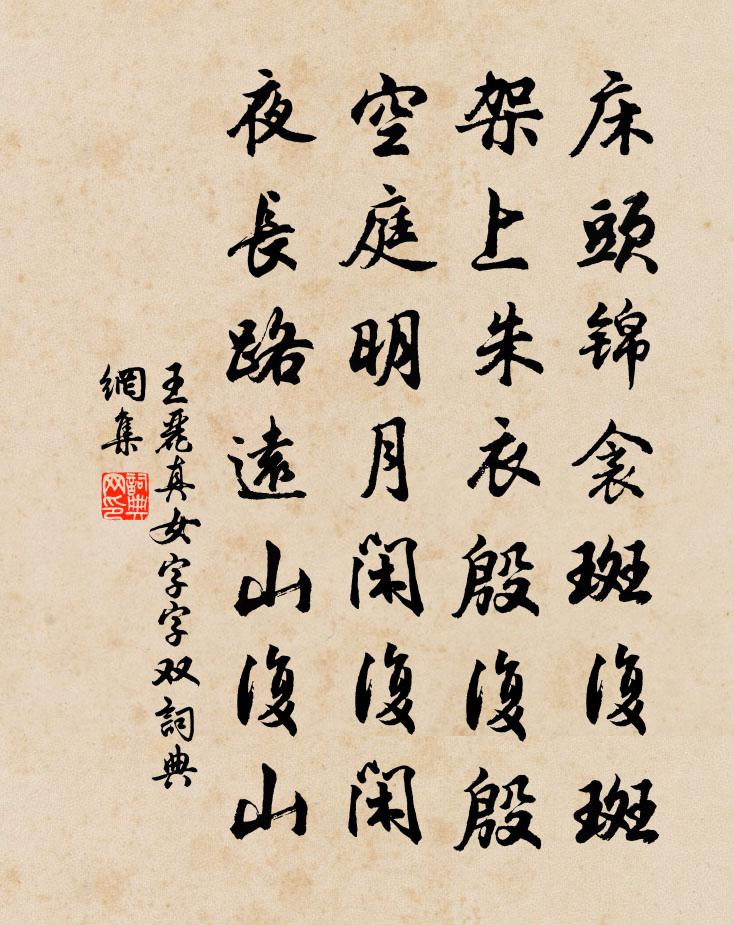 床頭锦衾斑復斑
架上朱衣殷復殷
空庭明月閑復閑
夜長路遠山復山
王麗真女字字双詞典
網集
詞典
网印